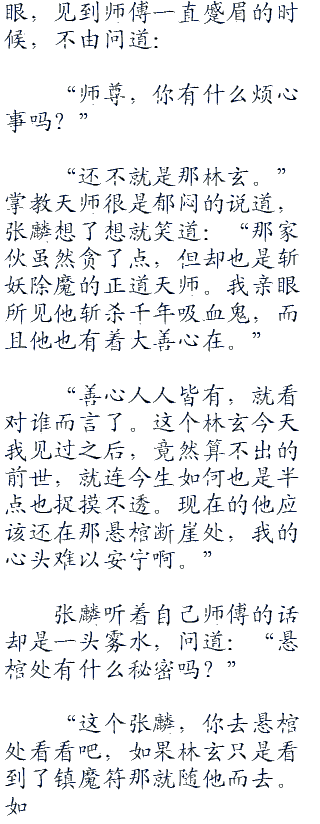 眼，见到师傅一直蹙眉的时
候，不由问道：
“师尊，你有什么烦心
事吗？”
“还不就是那林玄。”
掌教天师很是郁闷的说道，
张麟想了想就笑道：“那家
伙虽然贪了点，但却也是斩
妖除魔的正道天师。我亲眼
所见他斩杀千年吸血鬼，而
且他也有着大善心在。”
“善心人人皆有，就看
对谁而言了。这个林玄今天
我见过之后，竟然算不出的
前世，就连今生如何也是半
点也捉摸不透。现在的他应
该还在那悬棺断崖处，我的
心头难以安宁啊。”
张麟听着自己师傅的话
却是一头雾水，问道：“悬
棺处有什么秘密吗？”
“这个张麟，你去悬棺
处看看吧，如果林玄只是看
到了镇魔符那就随他而去。
如